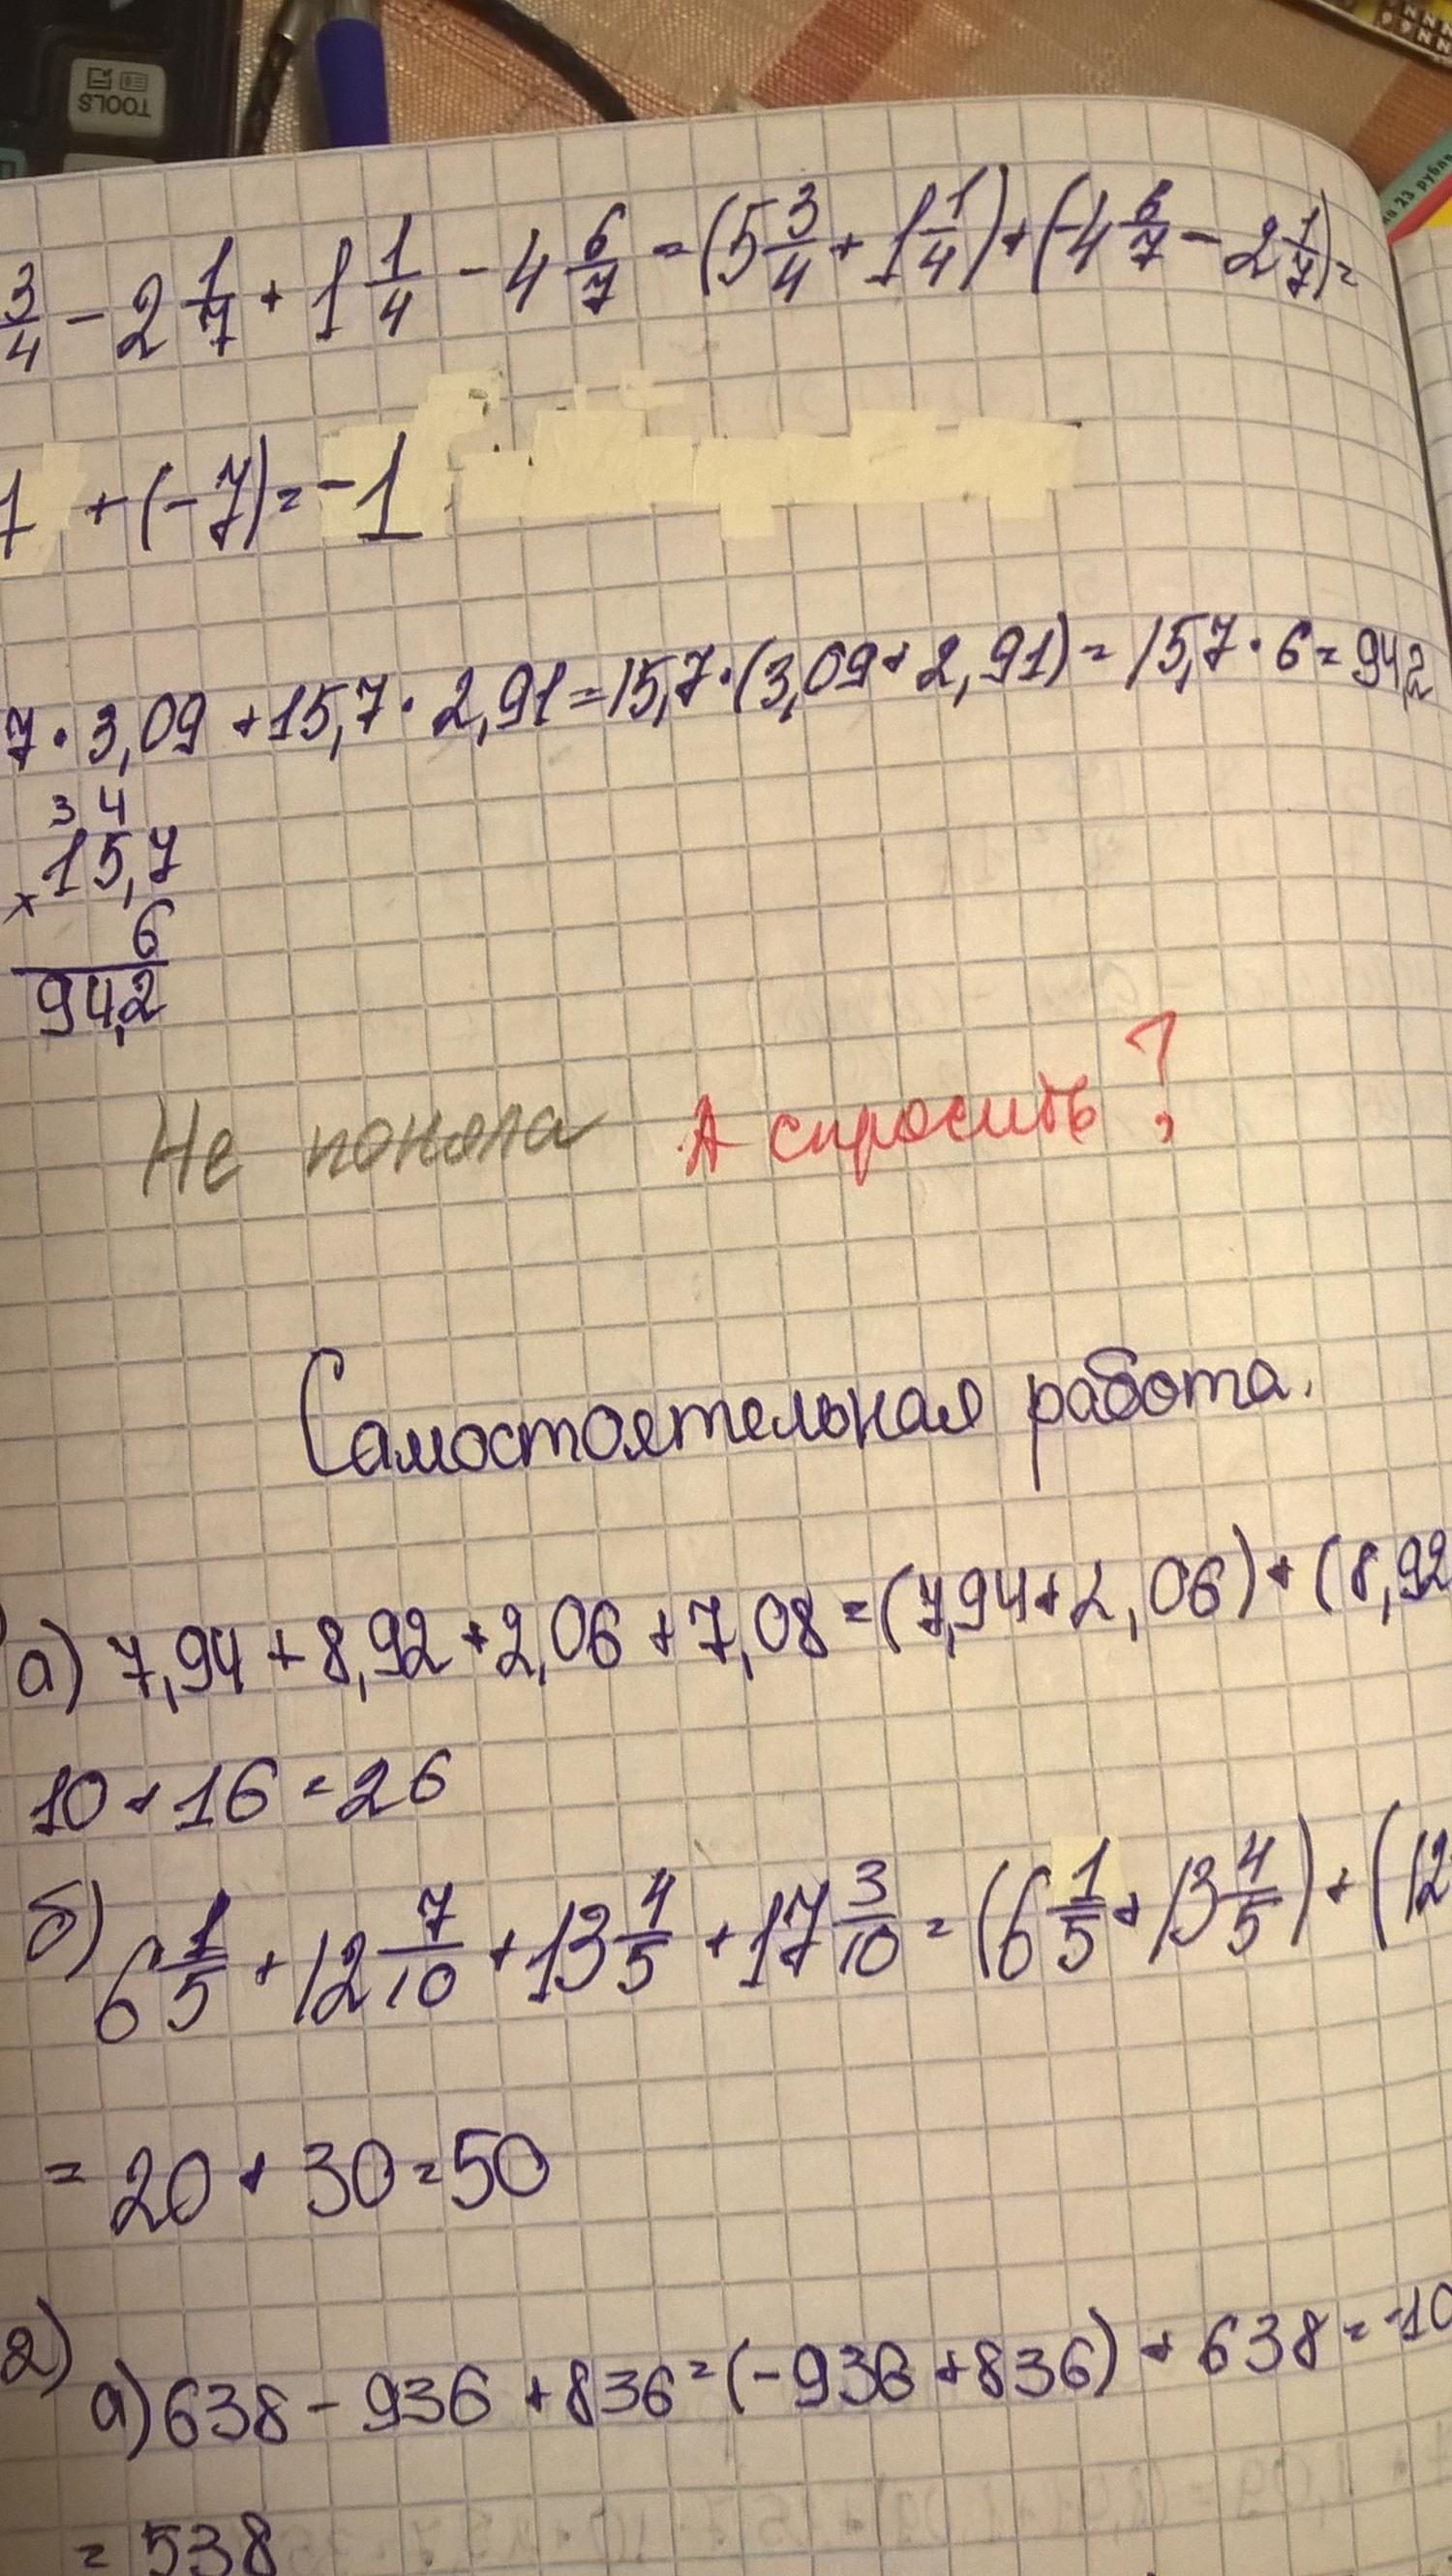 TOOLS
23 рубля
3/4 - 2 1/7 + 1 1/4 - 4 6/7 = (5 3/4 + 1 1/4) + (-4 6/7 - 2 1/7) =
+ (-7) = -1
7 · 3,09 + 15,7 · 2,91 = 15,7 · (3,09 + 2,91) = 15,7 · 6 = 94,2
3 4
× 15,7
6
94,2
Не поняла А спросить?
Самостоятельная работа.
а) 7,94 + 8,92 + 2,06 + 7,08 = (7,94 + 2,06) + (8,92
10 + 16 = 26
б) 6 1/5 + 12 7/10 + 13 4/5 + 17 3/10 = (6 1/5 + 13 4/5) + (12
= 20 + 30 = 50
2)
а) 638 - 936 + 836 = (-936 + 836) + 638 = -10
= 538